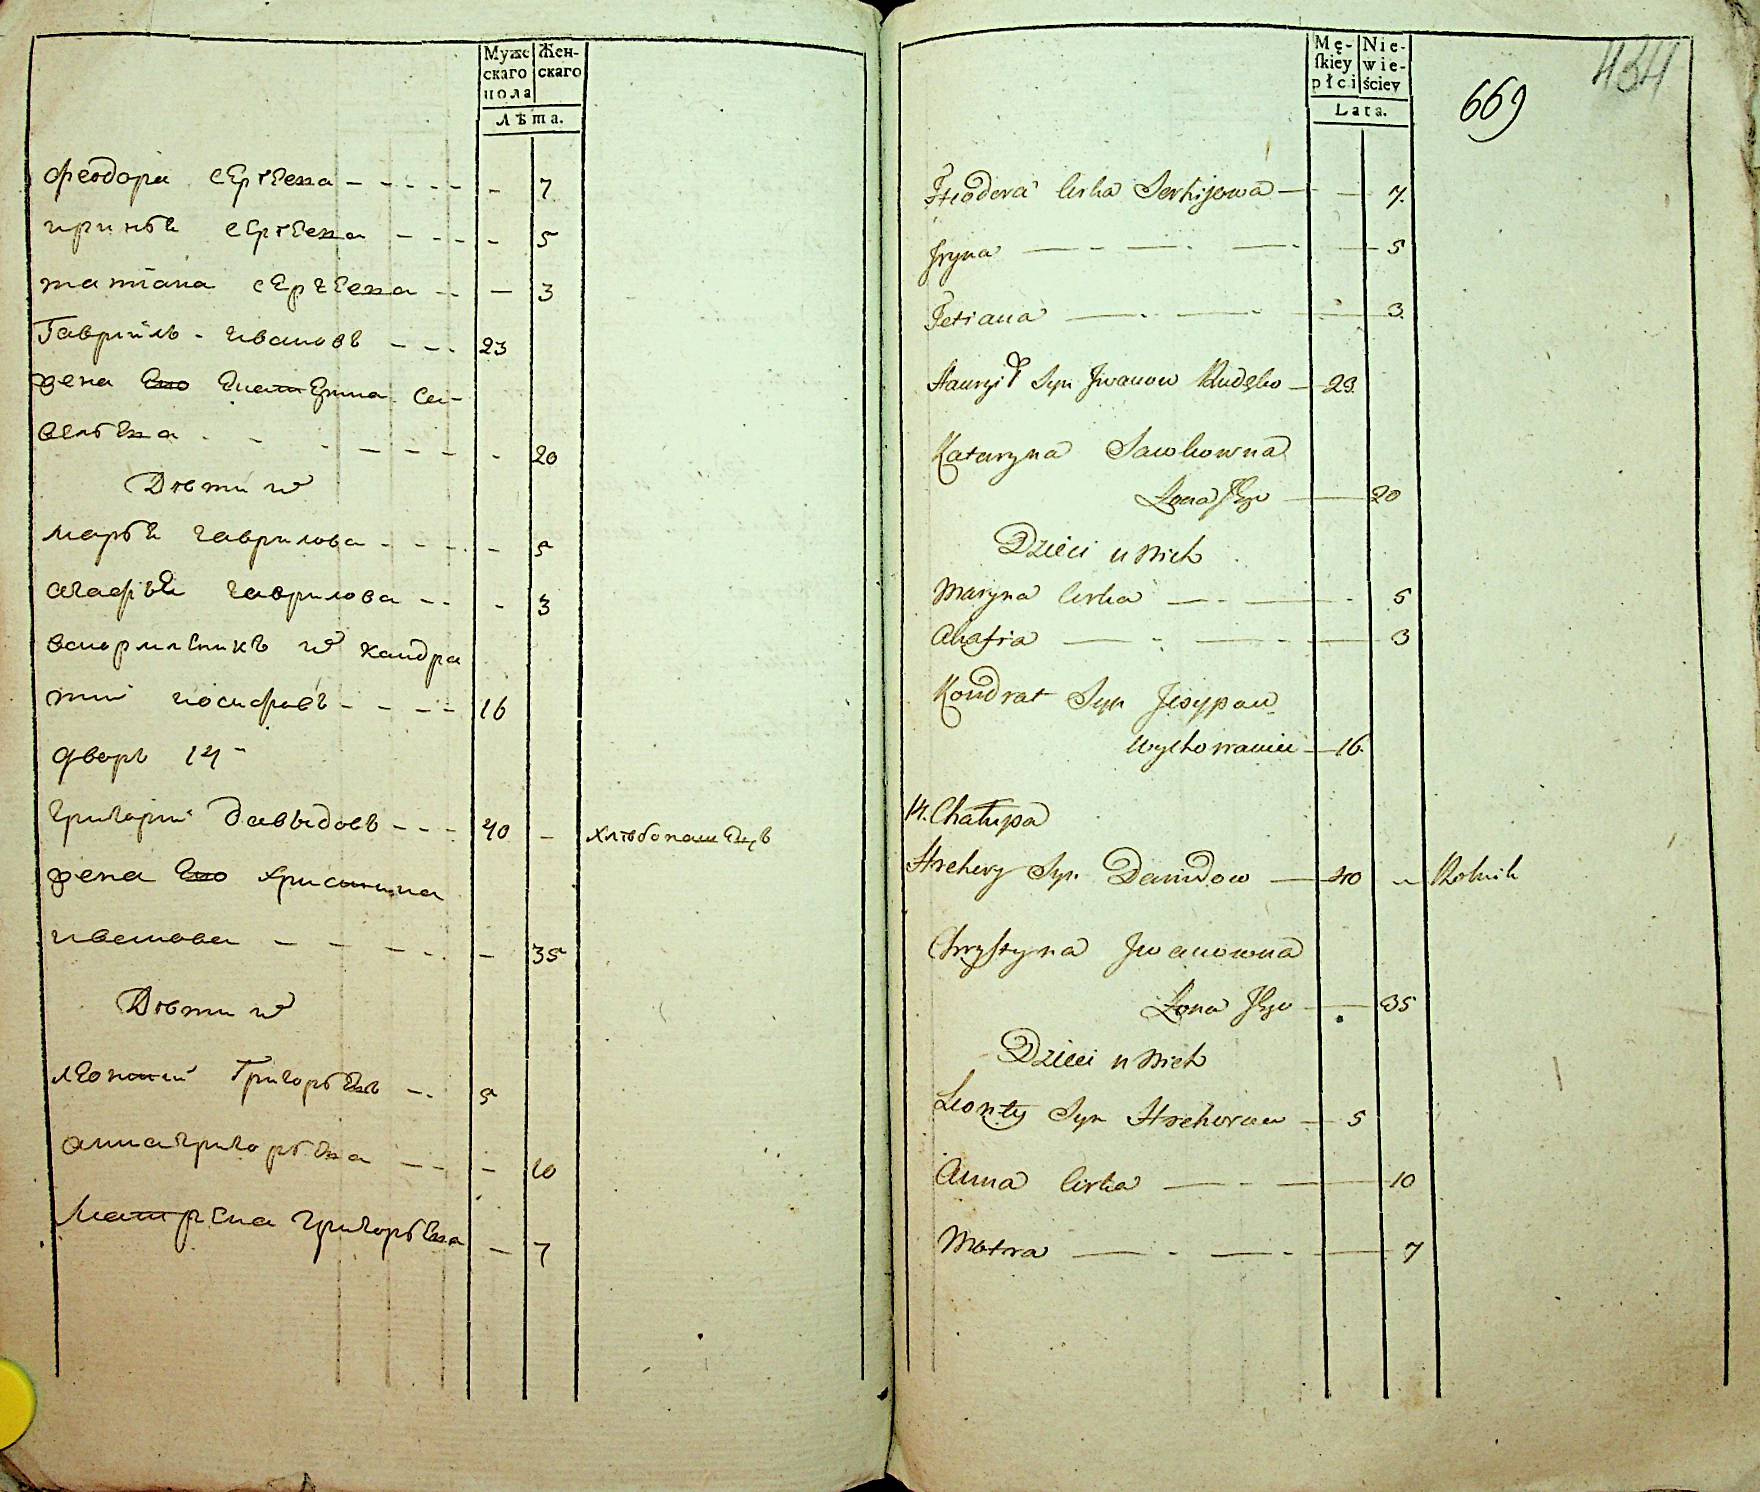 Муже Жен-
скаго скаго
пола
Лѣта.
феодора сергѣева - - - - - - 7
иринѣя сергѣева - - - - 5
татіана сергѣева - - - 3
Гавріилъ - ивановъ - - - 23
жена Его Екатерина са-
велѣева - - - - - - - 20
Дѣти их
марѣя гаврилова - - - - - 5
агафѣя гаврилова - - - 3
вормленикъ их кондра
тій иосифовъ - - - - 16
дворъ 14
григорій давыдовъ - - - 40 - хлѣбопашецъ
жена Его христина
иванова - - - - - 35
Дѣти их
леонтій Григорьевъ - - 5
анна григорѣева - - - 10
матрена григорѣева - 7
Mę- Nie-
skiey wie-
płci ściey
Lata.
669
434
Fteodora Corka Serhijowa — — 7.
Jryna — - — . — . — 5
Tetiana — . — . — 3.
Hauryił Syn Jwanow Rudęko — 23.
Kataryna Sawkowna
Żona Jego — 20
Dzieci u nich
Maryna Corka — . — . 5
Ahafia — . — . — 3
Kondrat Syn Jesypow
Wychowaniec — 16.
14. Chałupa
Hrehory Syn Dawidow — 40 - Rolnik
Chrystyna Jwanowna
Żona Jego — 35
Dzieci u nich
Leonty Syn Hrehorow — 5
Anna Corka — - — 10
Motra — . — - — 7